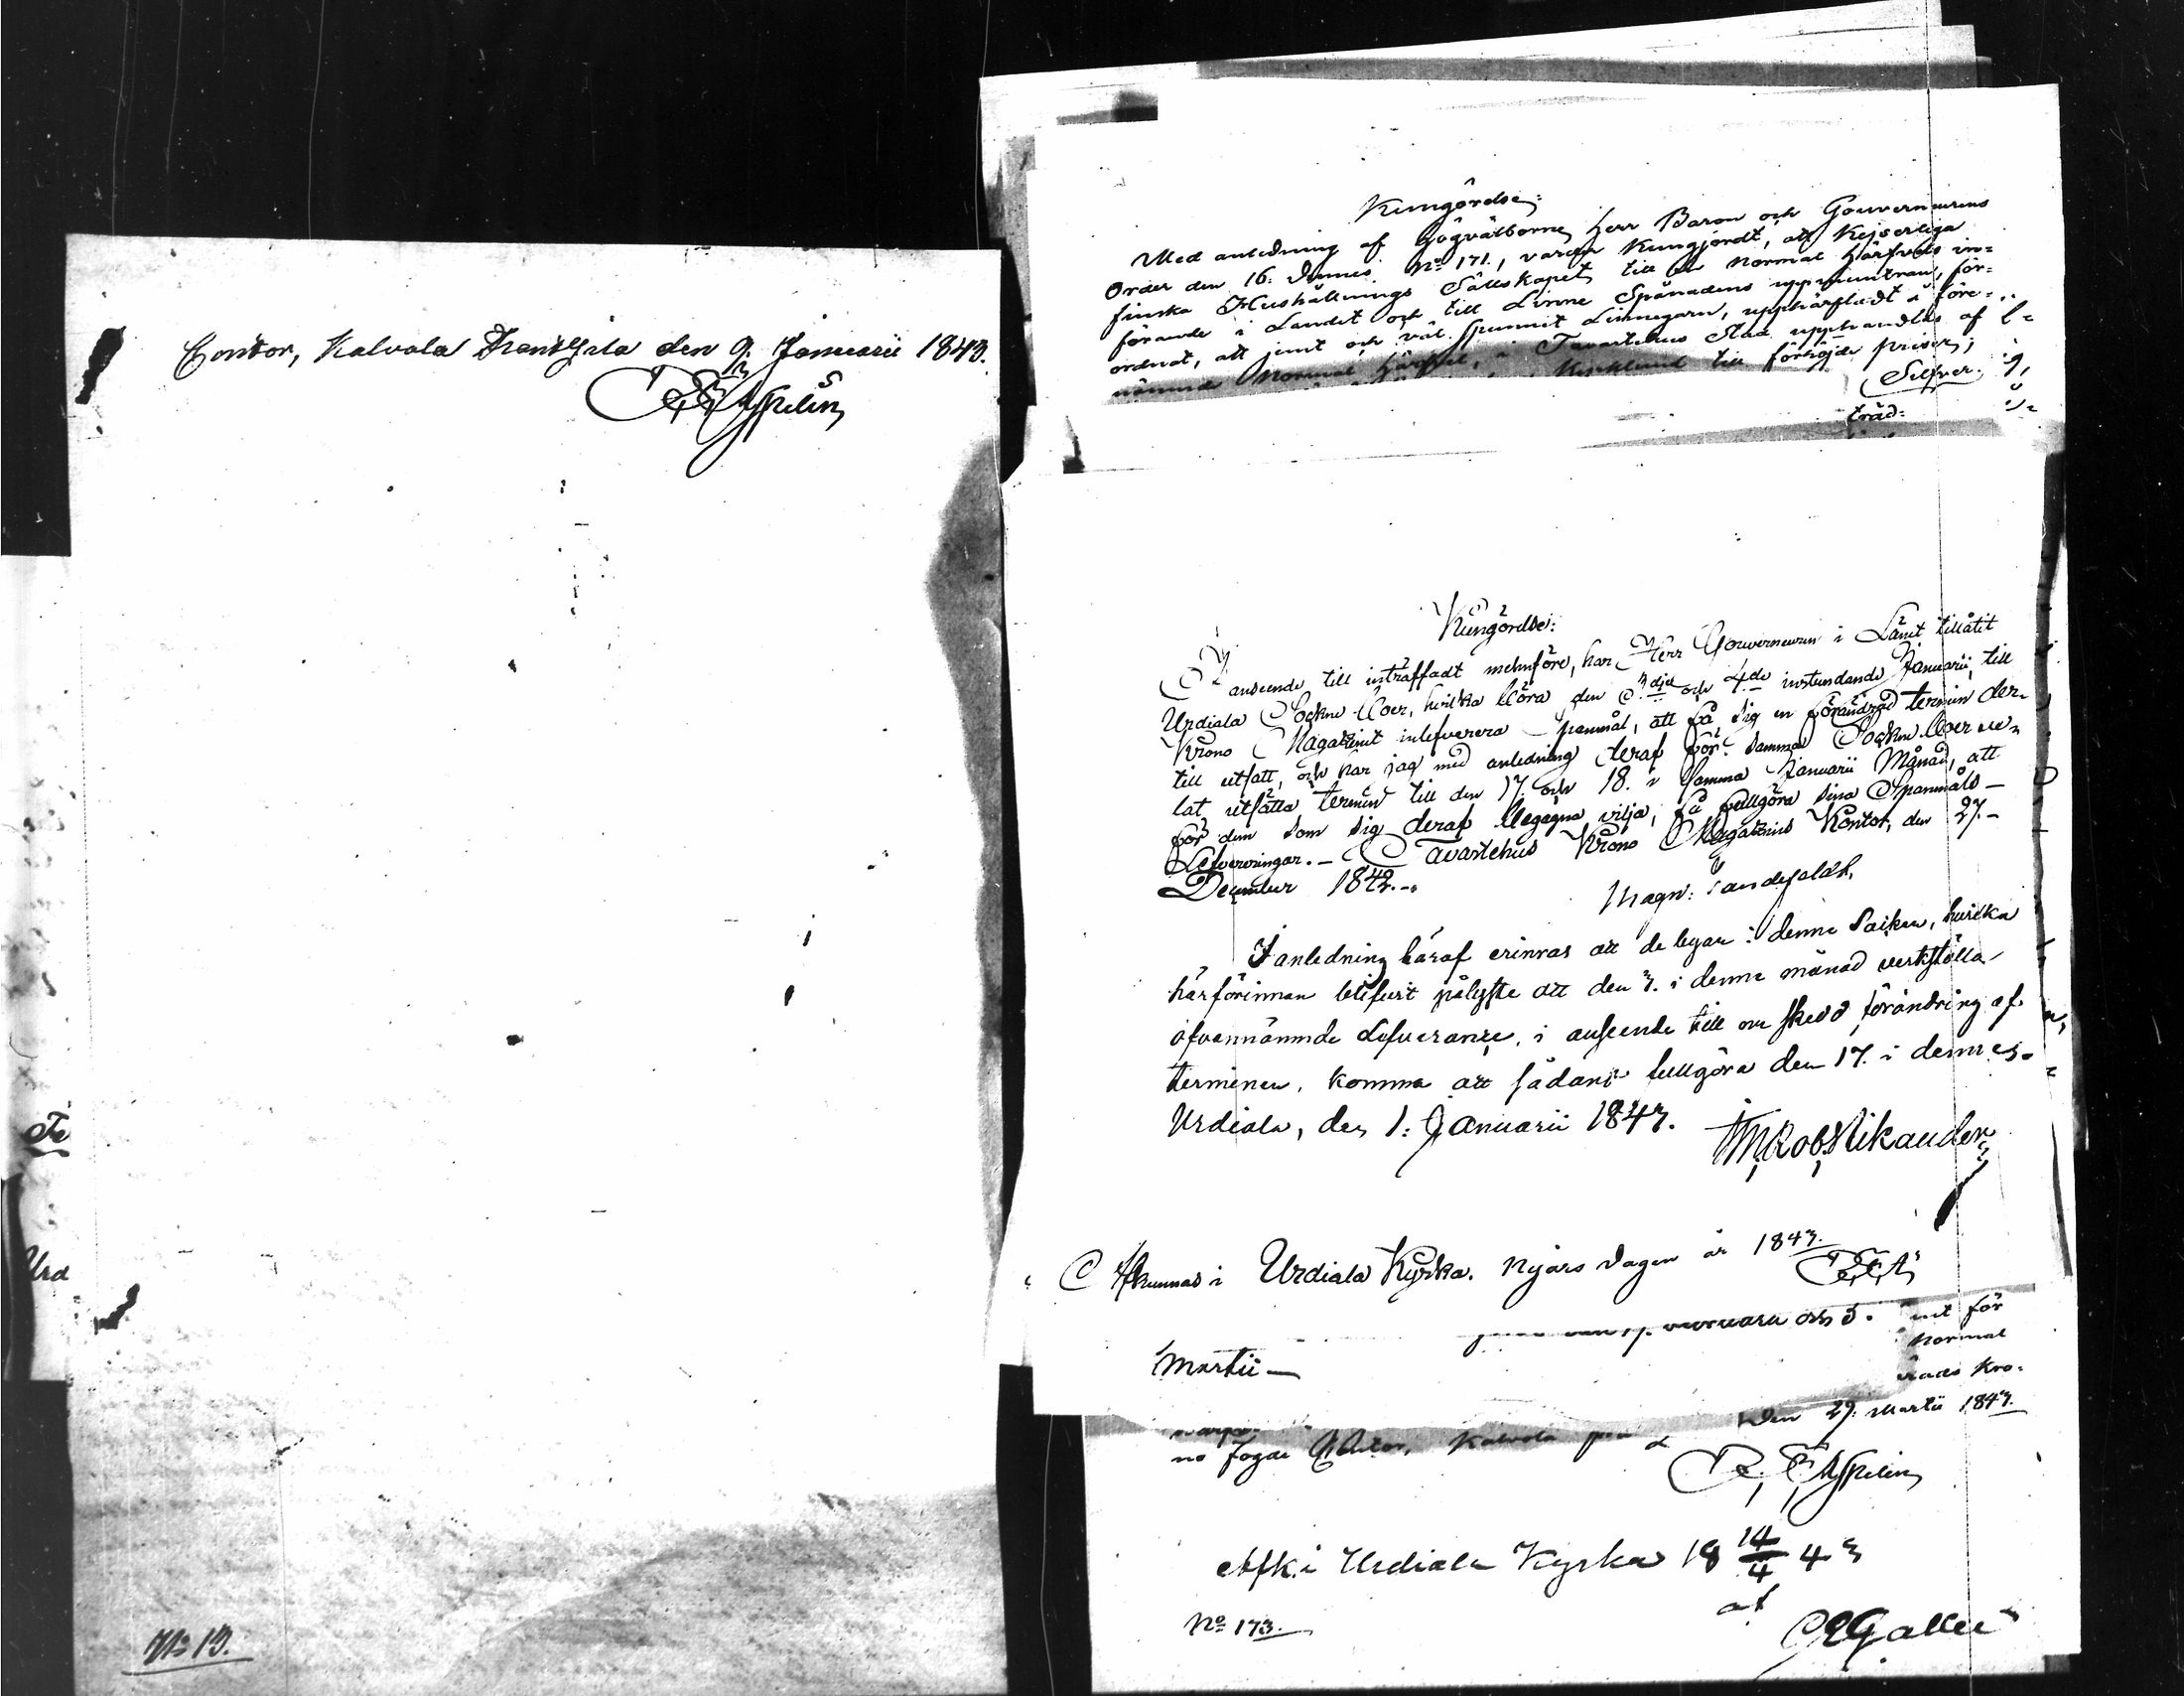 Contor, Kalvola Frantsila den 9. Januarii 1843.
Aspelin
Fe
Urd
No 13.
Kungörelse:
Med anledning af Högvälborne Herr Baron och Gouverneurens
Order den 16. dennes No 171., varder kungjordt, att Kejserliga
finska Hushållnings Sällskapet till Normal Härfvels in=
förande i Landet och till Linne Spånadens uppmuntran, för=
ordnat, att jemt och väl spunnit Linnegarn, upphärfladt å före=
nämnde Normal härfvel, i Tavastehus Stad upphandlas af
till förhöjde priser;
Silfver.
träd=
Kungörelse:
I anseende till inträffadt menföre, har Herr Gouverneuren i Länet tillåtit
Urdiala Sockne Boer, hvilka böra den 3dje och 4de instundande Januarii, till
Krono Magazinet inlefverera spanmål, att få sig en förändrad termin der-
till utsatt, och har jag med anledning deraf för samma Sockne Boer ve-
lat utsätta termin till den 17. och 18. i samma Januarii Månad, att
för dem som sig deraf begagna vilja, få fullgöra sina Spanmåls-
Lefvereringar.- Tavastehus Krono Magazins Kontor, den 27.-
December 1842.-
Magn:
I anledning häraf erinras att de byar i denne Sokn, hvilka
härförinnan blifvit pålyste att den 3. i denne månad verkställa
ofvannämnde Lefverance, i anseende till om skedd förändring af
terminen, komma att sådant fullgöra den 17. i dennes.
Urdiala, den 1. Januarii 1843.
Rob. Nikander
Afkunnas i Urdiala Kyrka. Nyårs dagen år 1843.
och 5.
Martii —
för
Normal
Kro-
no Fogde Contor, Kalvola den 29. Martii 1843.
Aspelin
Afk. i Urdiala Kyrka 18 14/4 43
af
No 173.